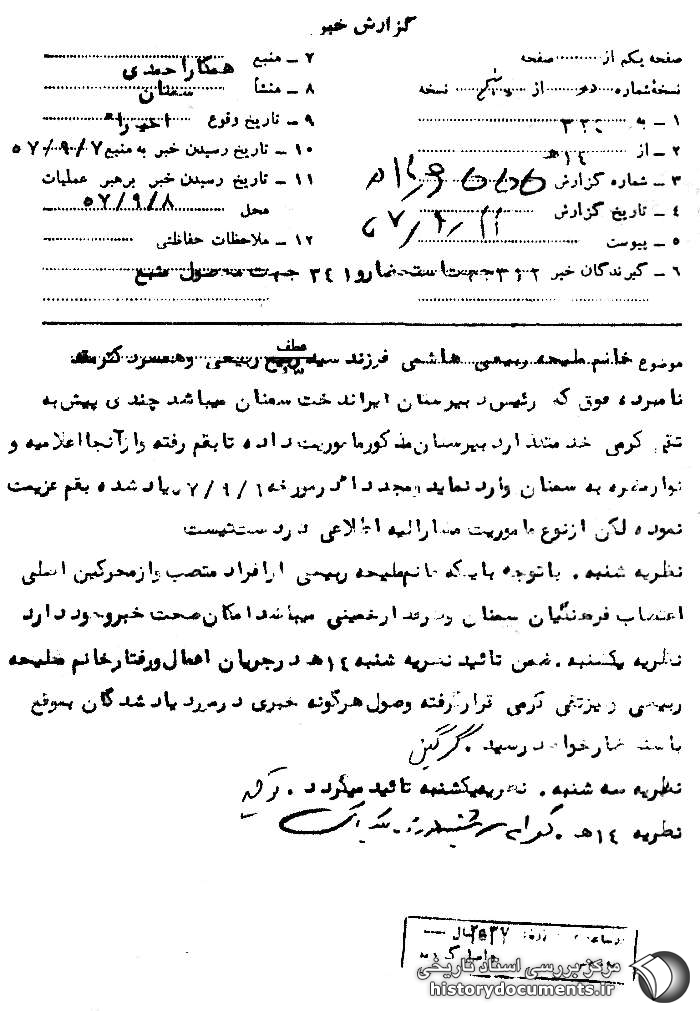 گزارش خبر
صفحه یکم از صفحه
نسخهٔ شماره دو از پنج نسخه
۱ - به ۳۲۲
۲ - از ۱۴ه
۳ - شماره گزارش
۴ - تاریخ گزارش
۵ - پیوست
۶ - گیرندگان خبر ۳۱۲ جهت استحضار و ۳۴۱ جهت محصول منبع
۷ - منبع همکار احمدی
۸ - منشأ سمنان
۹ - تاریخ وقوع اخیرا
۱۰ - تاریخ رسیدن خبر به منبع ۵۷/۹/۷
۱۱ - تاریخ رسیدن خبر برهبر عملیات
محل ۵۷/۹/۸
۱۲ - ملاحظات حفاظتی
عطف
موضوع خانم ملیحه ربیعی هاشمی فرزند سید ربیعی وهمسرد کتر
نامبرده فوق که رئیس دبیرستان ایراندخت سمنان میباشد چندی پیش به
تقی کرمی خدمتگذار دبیرستان مذکور ماموریت داده تا بقم رفته و از آنجا اعلامیه و
نوار مضره به سمنان وارد نماید و مجددا در مورخه ۵۷/۹/۱ یاد شده بقم عزیمت
نموده لکن از نوع ماموریت مشارالیه اطلاعی در دست نیست
نظریه شنبه. با توجه باینکه خانم ملیحه ربیعی از افراد متعصب و از محرکین اصلی
اعتصاب فرهنگیان سمنان و طرفدار خمینی میباشد امکان صحت خبر وجود دارد
نظریه یکشنبه. ضمن تائید نظریه شنبه ۱۴ه در جریان اعمال و رفتار خانم ملیحه
ربیعی و نیز تقی کرمی قرار گرفته وصول هرگونه خبری در مورد یاد شدگان بموقع
باستحضار خواهد رسید. گرگین
نظریه سه شنبه. نظریه یکشنبه تائید میگردد.
نظریه ۱۴ه.
مرکز بررسی اسناد تاریخی
historydocuments.ir